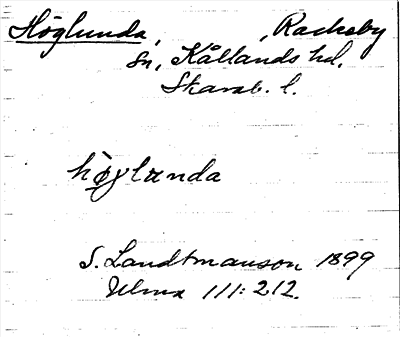 Höglunda, , Rackeby
sn, Kållands hd.
Skarab. l.
hø̀glunda
S. Landtmanson 1899
Ulma 111:212.